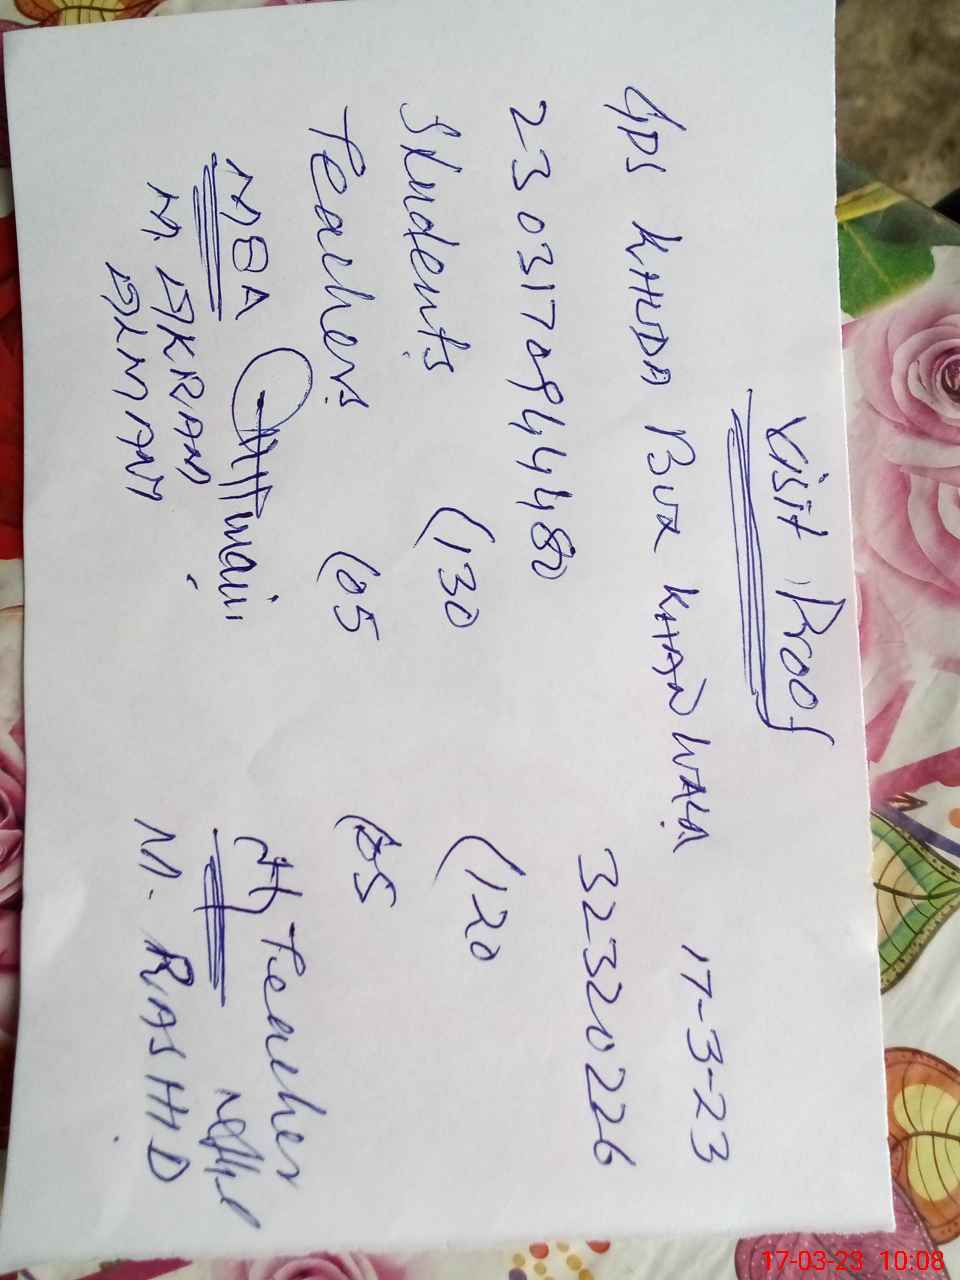 Visit Proof
GPS KHUDA Bux KHAN WALA 17-3-23
2303170944480 32320226
Students (130 (120
Teachers (05 (05
MEA H Teacher
M. AKRAM M. RASHID
17-03-23 10:08